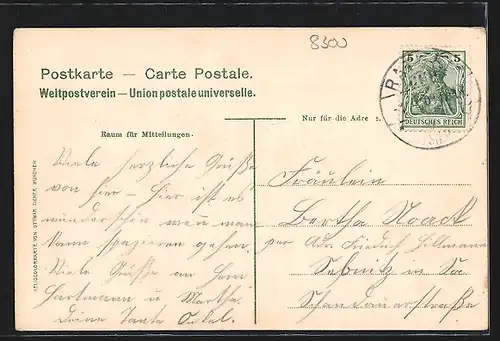 8300
Postkarte — Carte Postale.
Weltpostverein — Union postale universelle.
5 5
DEUTSCHES REICH
Raum für Mitteilungen.
Nur für die Adresse.
Viele herzliche Grüße
von hier – Hier ist es
wunderschön wenn man
kann spazieren gehen.
Viele Grüße an Herrn
Hartmann u. Martha.
Deine Tante
Fräulein
Bertha Noack
per Adr. Friedrich Hillmann
Sebnitz in Sa
Schandauerstraße
HELIOCOLORKARTE VON OTTMAR ZIEHER, MÜNCHEN